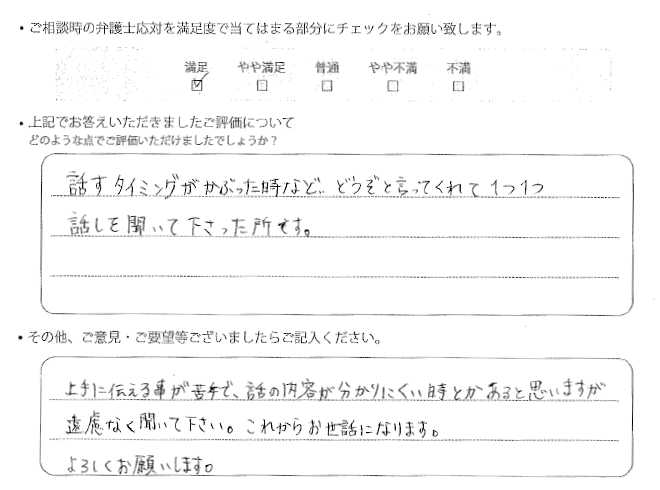 ・ご相談時の弁護士応対を満足度で当てはまる部分にチェックをお願い致します。
満足 やや満足 普通 やや不満 不満
☑ □ □ □ □
・上記でお答えいただきましたご評価について
どのような点でご評価いただけましたでしょうか？
話すタイミングがかぶった時など、どうぞと言ってくれて1つ1つ
話しを聞いて下さった所です。
・その他、ご意見・ご要望等ございましたらご記入ください。
上手に伝える事が苦手で、話の内容が分かりにくい時とかあると思いますが
遠慮なく聞いて下さい。これからお世話になります。
よろしくお願いします。